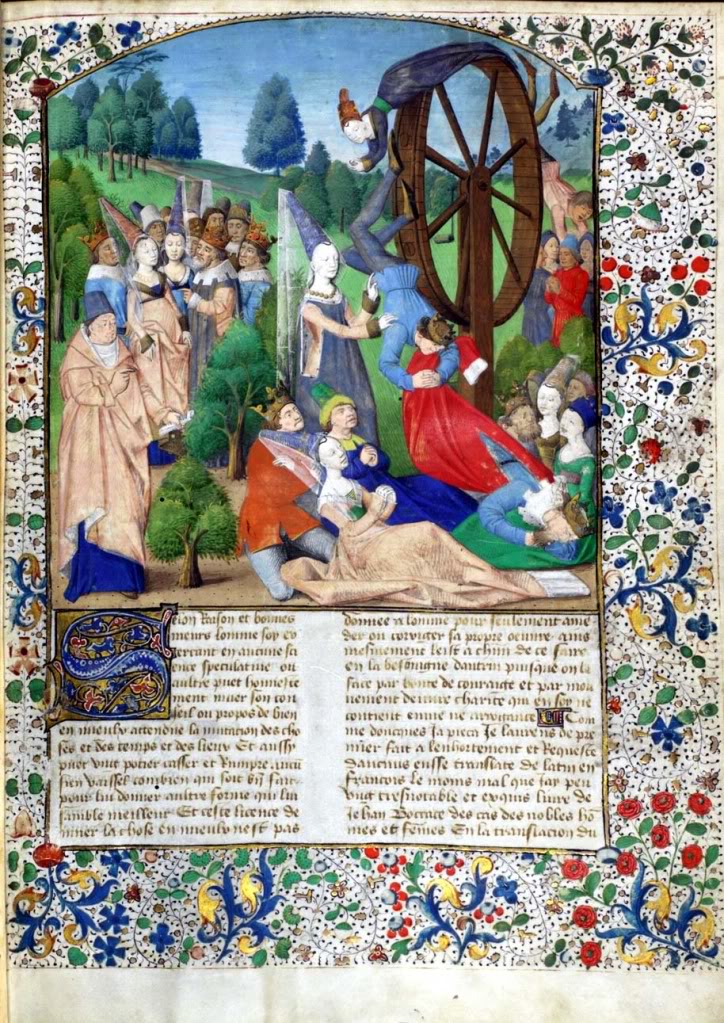 Selon Raison et bonnes
meurs lomme soy ex
ercant en aucune sci
ence speculative ou
aultre puet honneste
ment muer son con
seil ou propos de bien
en mieulx attendue la mutacion des cho
ses et des temps et des lieux Et aussy
puet ung potier casser et Rumpre aucu
bien vaissel combien qui soit bien fait
pour lui donner aultre forme qui lui
samble meilleur Et ceste licence de
muer la chose en mieulx nest pas
donnee a lomme pour seulement amen
der ou corriger sa propre oeuvre ains
mesmement leist a chun de ce faire
en la besoingne dautrui puisque on la
face par bonte de couraige et par mou
uement de vraie charite qui en soy ne
contient enuie ne arrogance Com
me doncques Ja pieca Je laurens de pre
mier fait a lenhortement et Requeste
daucuns eusse translate de latin en
francois le moins mal que Jay peu
ung tresnotable et exquis liure de
Jehan Boccace des cas des nobles ho
mes et femes En la translacion du